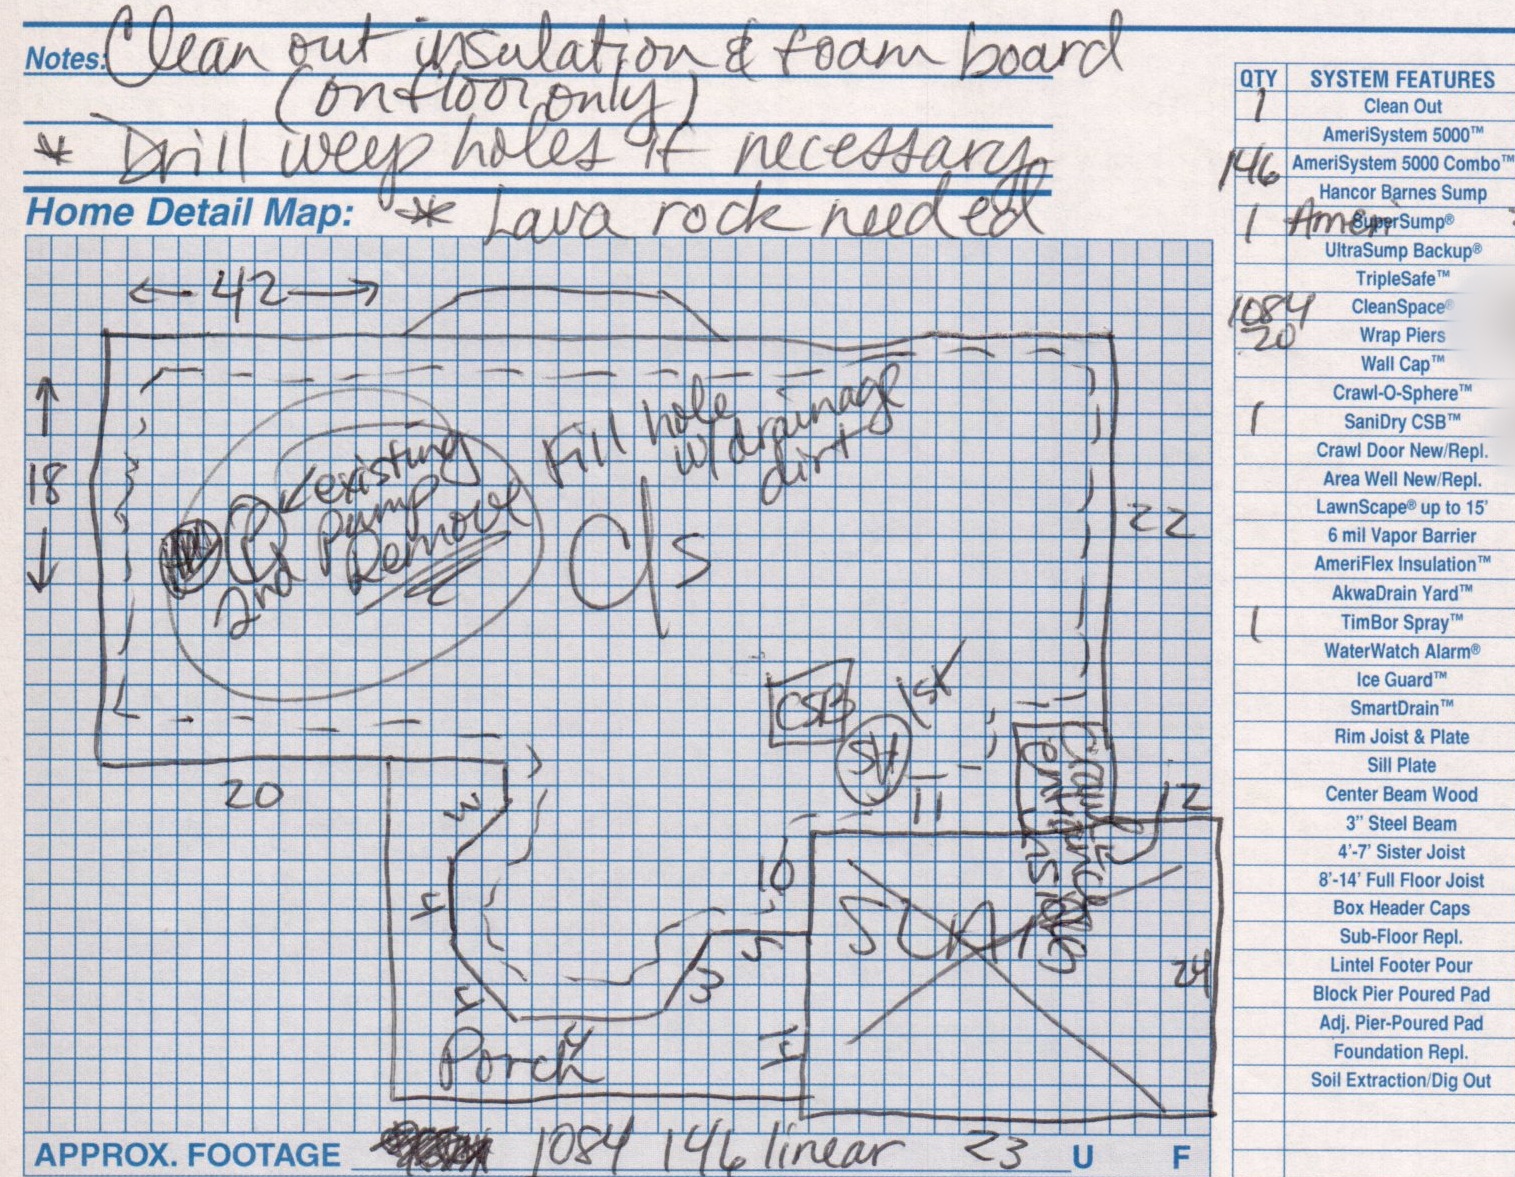 Notes: Clean out insulation & foam board
(on floor only)
* Drill weep holes if necessary
Home Detail Map: * Lava rock needed
← 42 →
18
existing
Pump
Remove
2nd
Fill hole
w/ drainage
dirt
C/S
22
CSB
1st
20
3
11
12
Crawl
entrance
inside
10
4
4
4
3
5
14
Porch
SLAB
24
APPROX. FOOTAGE 1084 146 linear 23 U F
QTY SYSTEM FEATURES
1 Clean Out
AmeriSystem 5000™
146 AmeriSystem 5000 Combo™
Hancor Barnes Sump
1 Ameri SuperSump®
UltraSump Backup®
TripleSafe™
1084 CleanSpace®
20 Wrap Piers
Wall Cap™
Crawl-O-Sphere™
1 SaniDry CSB™
Crawl Door New/Repl.
Area Well New/Repl.
LawnScape® up to 15'
6 mil Vapor Barrier
AmeriFlex Insulation™
AkwaDrain Yard™
1 TimBor Spray™
WaterWatch Alarm®
Ice Guard™
SmartDrain™
Rim Joist & Plate
Sill Plate
Center Beam Wood
3" Steel Beam
4'-7' Sister Joist
8'-14' Full Floor Joist
Box Header Caps
Sub-Floor Repl.
Lintel Footer Pour
Block Pier Poured Pad
Adj. Pier-Poured Pad
Foundation Repl.
Soil Extraction/Dig Out